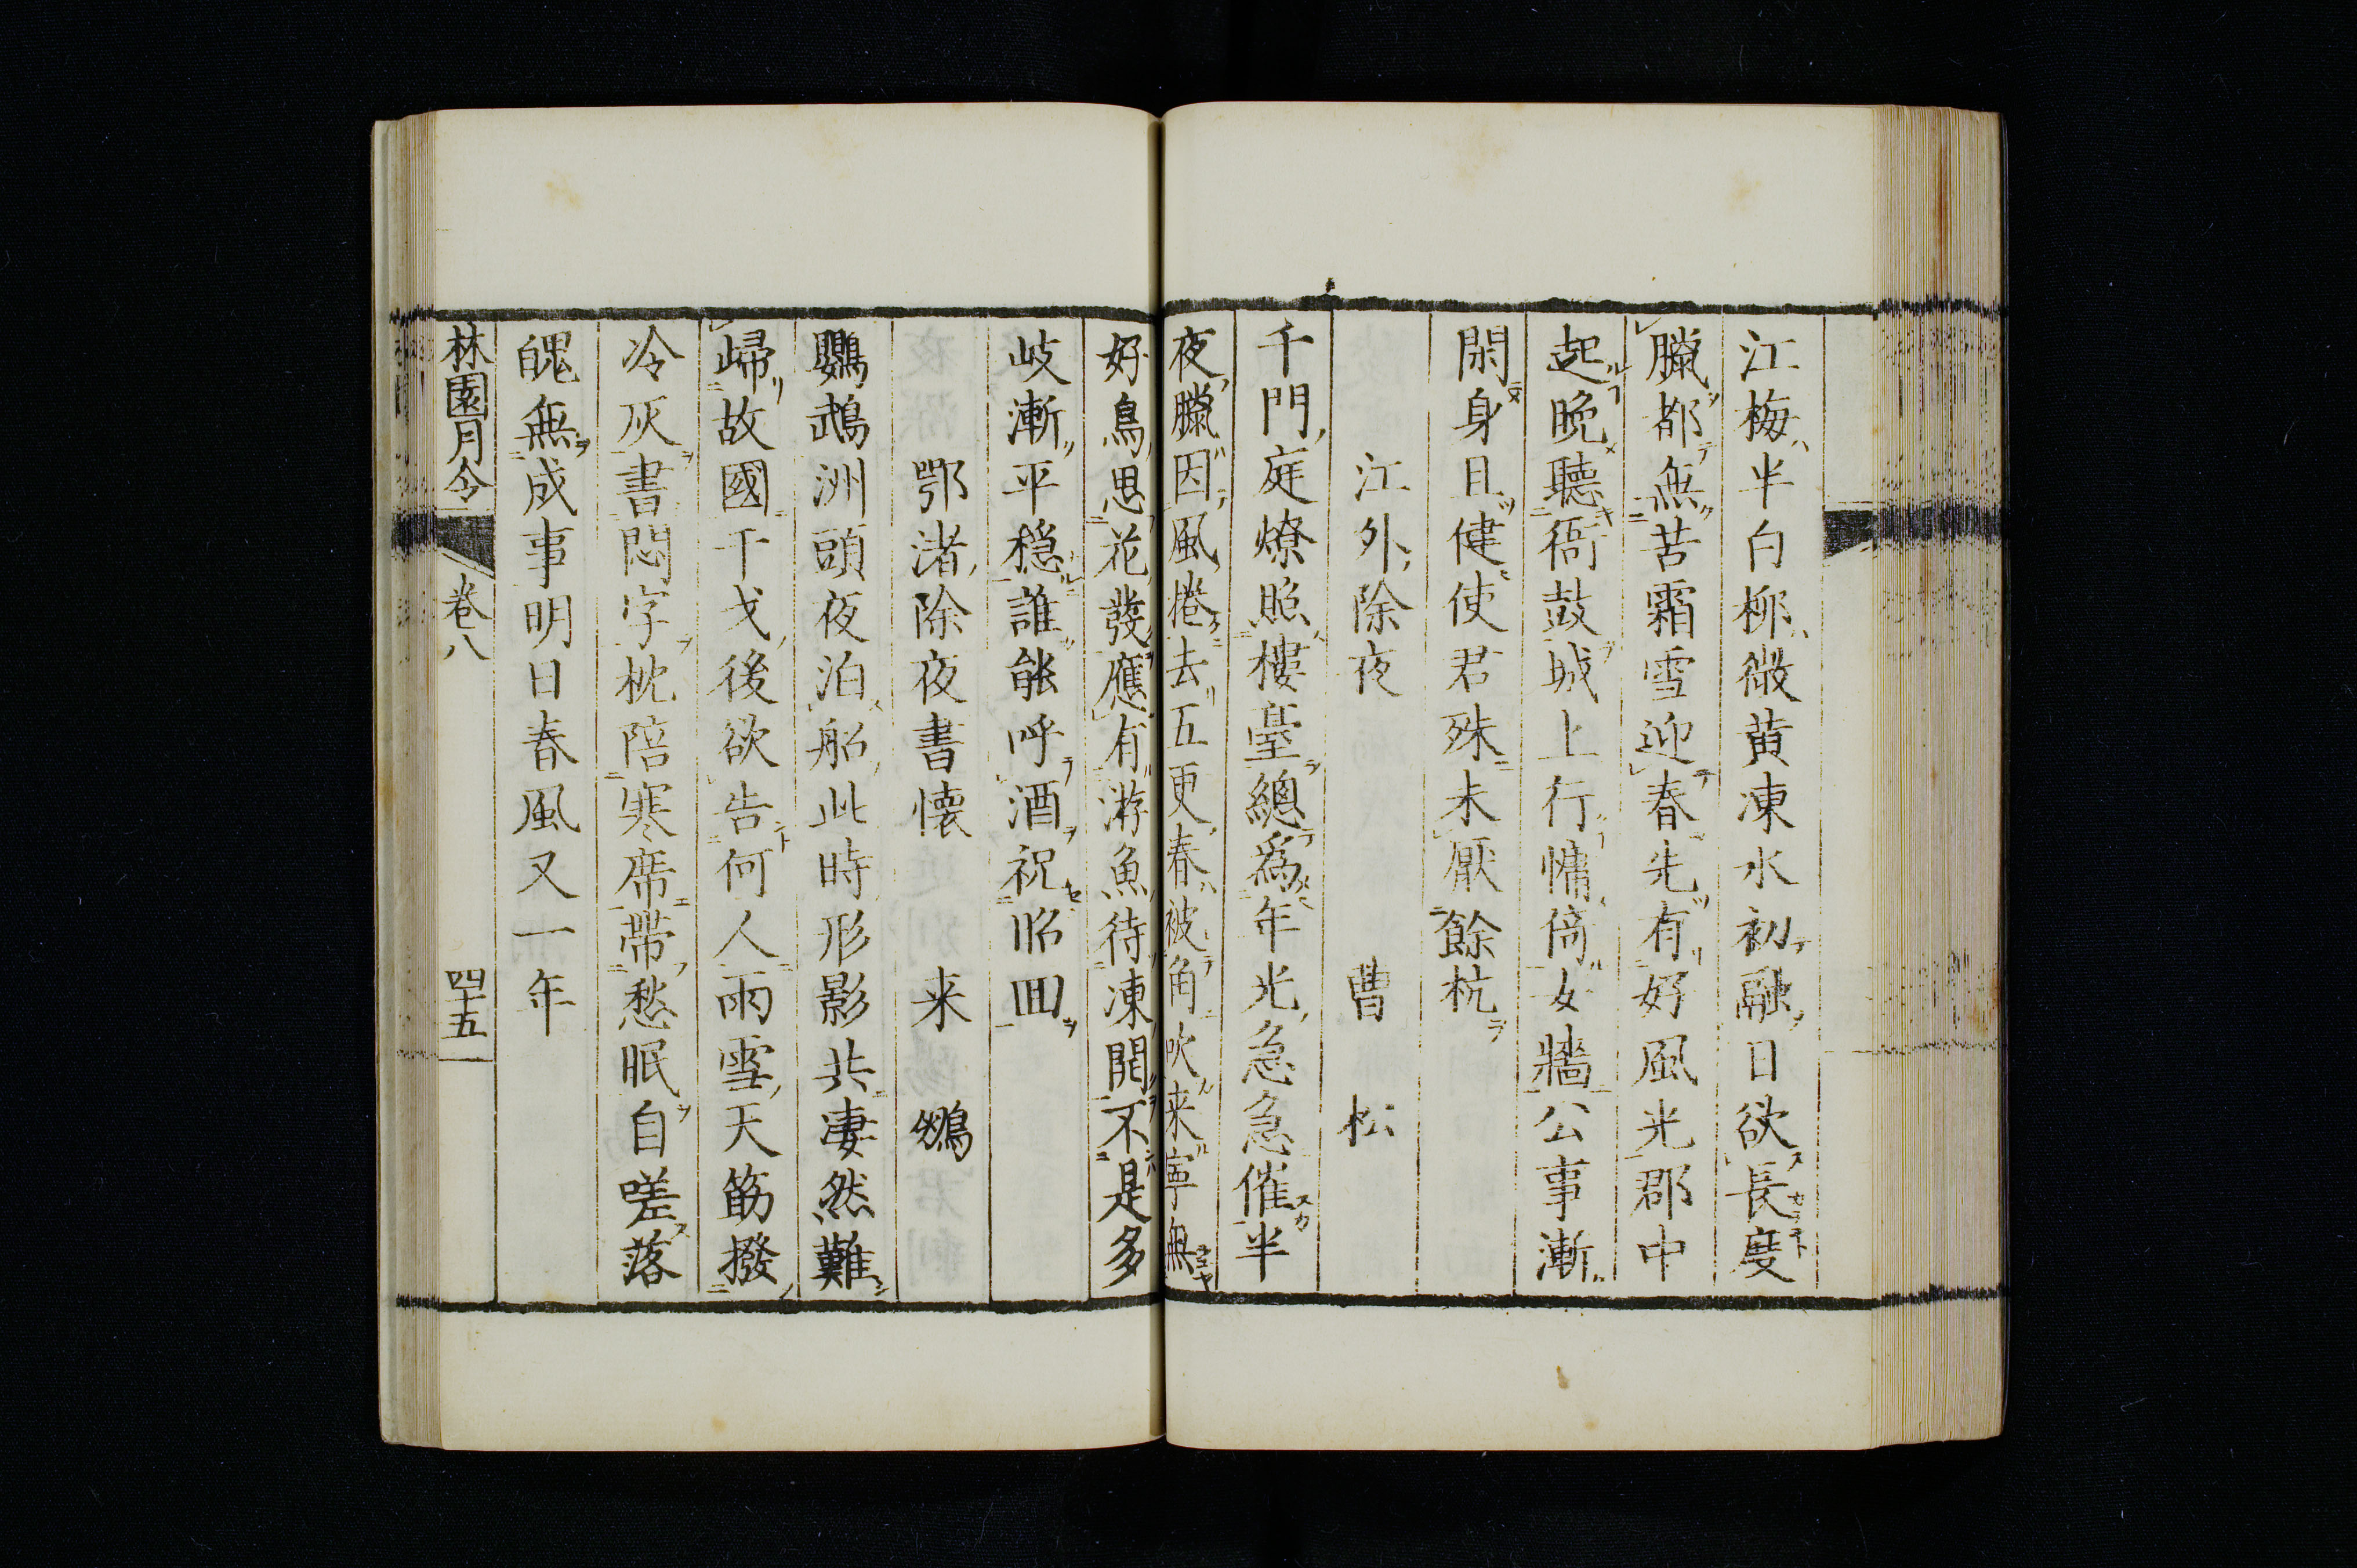 江梅半白柳微黄凍水初融日欲長度
臘都無苦霜雪迎春先有好風光郡中
起晩聽衙鼓城上行慵倚女牆公事漸
閑身且健使君殊未厭餘杭
江外除夜　曹松
千門庭燎照樓臺總爲年光急急催半
夜臘因風捲去五更春被角吹来寧無
好鳥思花發應有游魚待凍開不是多
岐漸平穏誰能呼酒祝昭回
鄂渚除夜書懐　来鵠
鸚鵡洲頭夜泊船此時形影共凄然難
歸故國干戈後欲告何人雨雪天筯撥
冷灰書悶字枕陪寒席帶愁眠自嗟落
魄無成事明日春風又一年
林園月令　卷八　四十五